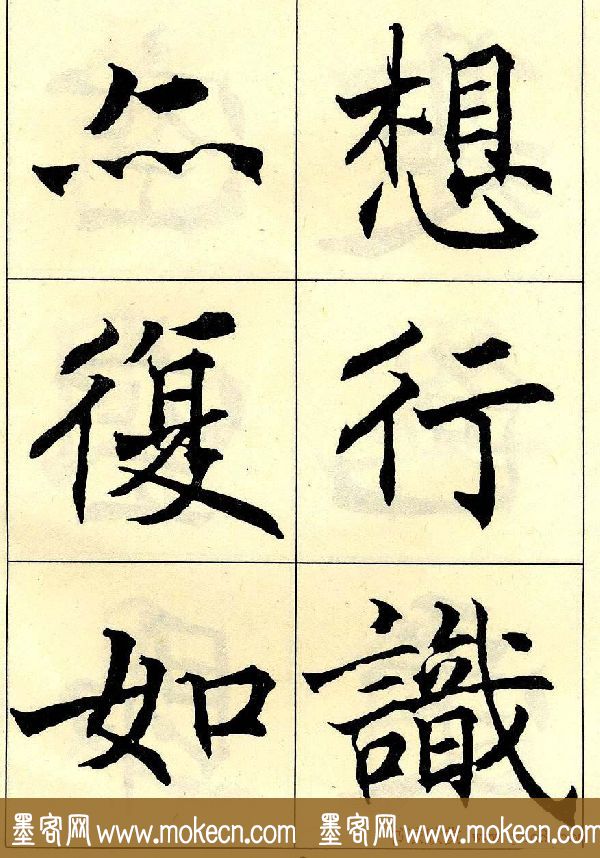 想行識
亦復如
墨客网 www.mokecn.com 墨客网 www.mokecn.com